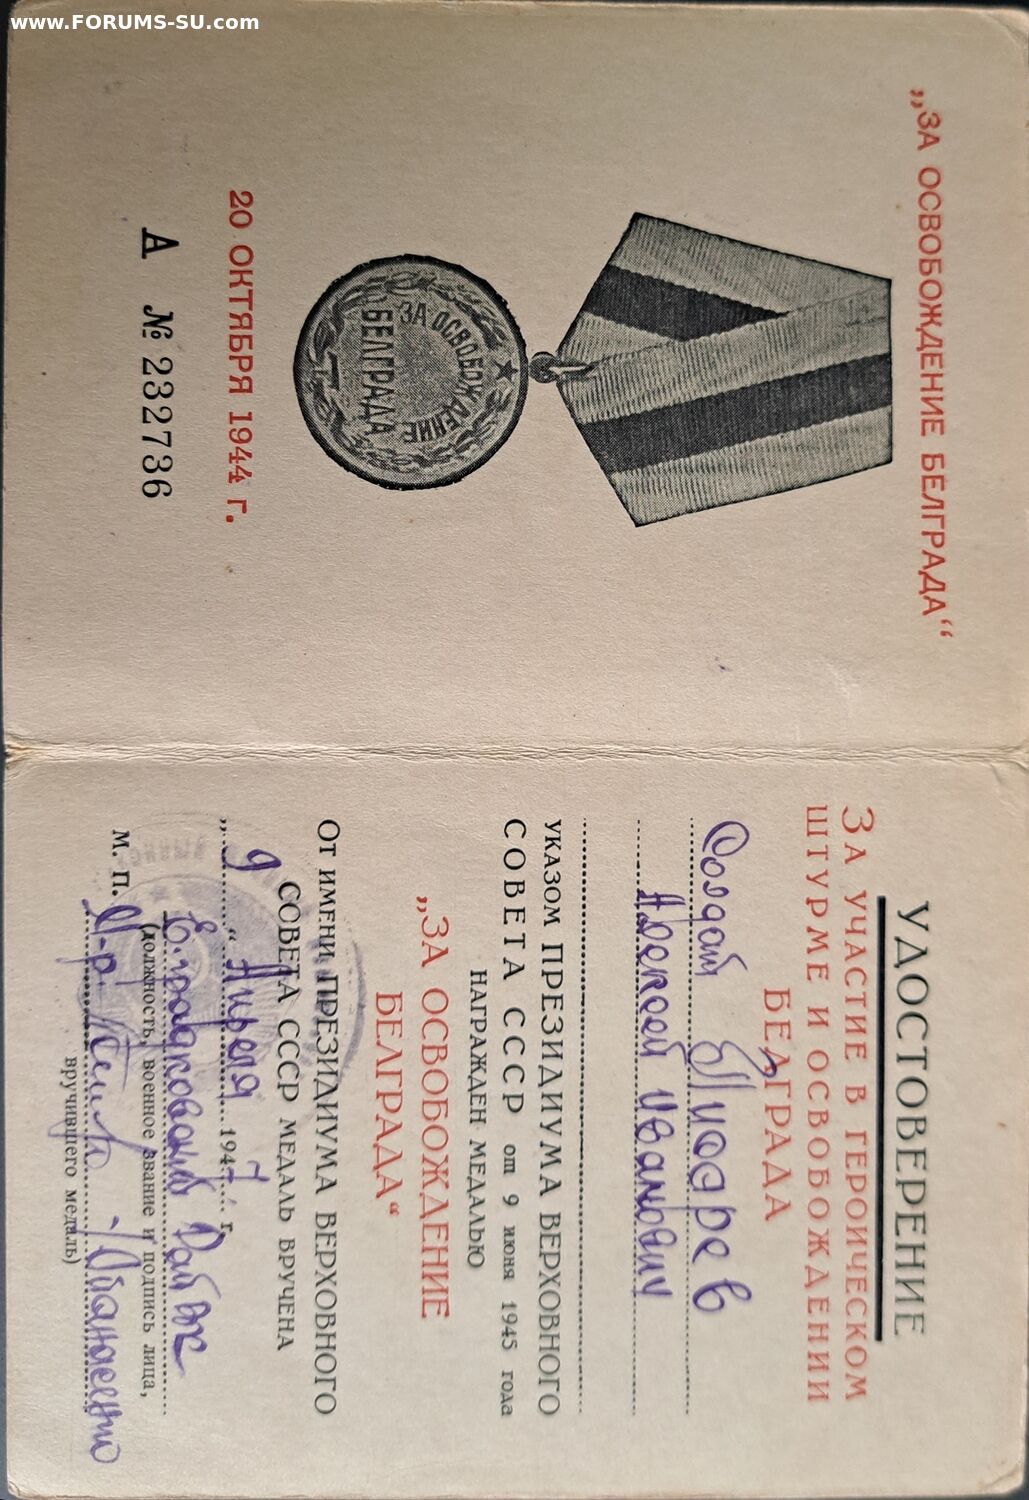 www.FORUMS-SU.com
„ЗА ОСВОБОЖДЕНИЕ БЕЛГРАДА“
ЗА ОСВОБОЖДЕНИЕ
БЕЛГРАДА
20 ОКТЯБРЯ 1944 г.
А № 232736
УДОСТОВЕРЕНИЕ
ЗА УЧАСТИЕ В ГЕРОИЧЕСКОМ
ШТУРМЕ И ОСВОБОЖДЕНИИ
БЕЛГРАДА
Солдат
Алексей Иванович
УКАЗОМ ПРЕЗИДИУМА ВЕРХОВНОГО
СОВЕТА СССР от 9 июня 1945 года
НАГРАЖДЕН МЕДАЛЬЮ
„ЗА ОСВОБОЖДЕНИЕ
БЕЛГРАДА“
От имени ПРЕЗИДИУМА ВЕРХОВНОГО
СОВЕТА СССР МЕДАЛЬ ВРУЧЕНА
„9“ Апреля 1947 г.
(должность, военное звание и подпись лица,
М. П. М-р
вручившего медаль)